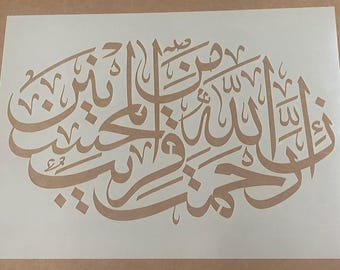 إن رحمت الله قريب من المحسنين